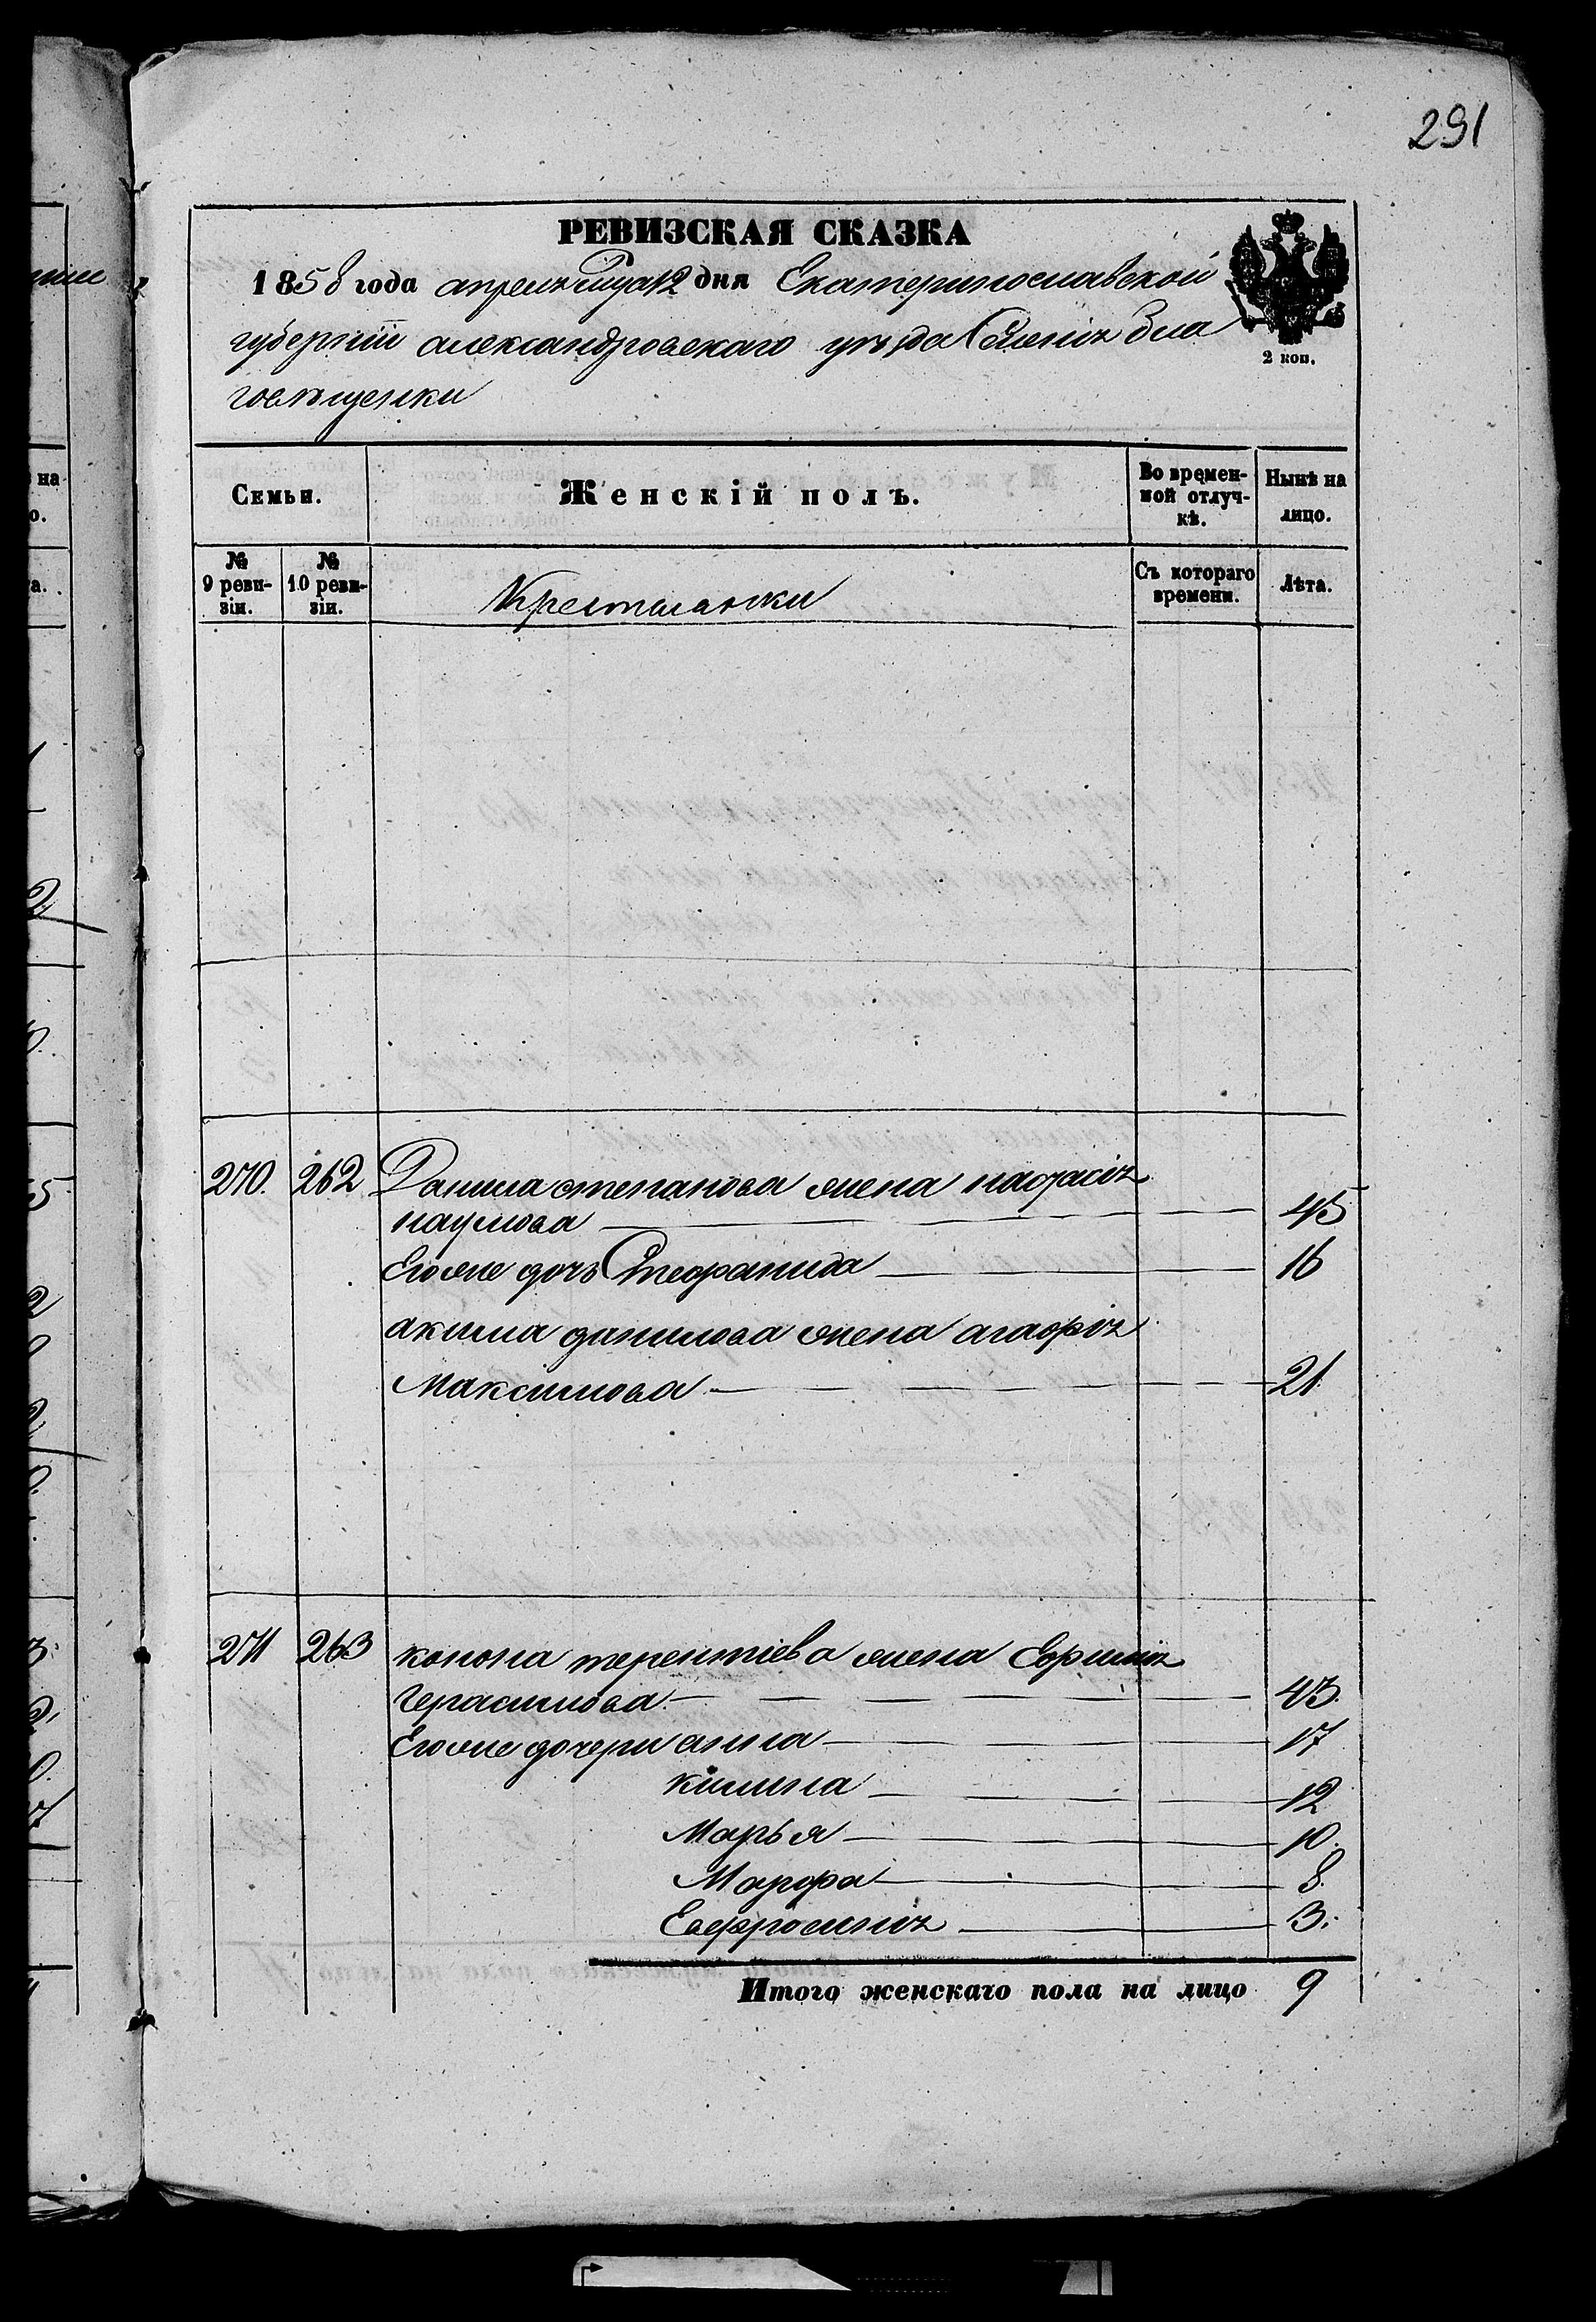 291
РЕВИЗСКАЯ СКАЗКА
1858 года апреля м-ца 12 дня Екатеринославской
губерніи александровскаго уѣзда Селенія бла
говѣщенки
2 коп.
Семьи. Женскій полъ. Во времен-
ной отлуч-
кѣ. Нынѣ на
лицо.
№
9 реви-
зіи. №
10 реви-
зіи. Крестьянки Съ котораго
времени. Лѣта.
270. 262 Данила степанова жена настасія
наумова 45
Егоже дочь Стефанида 16
акима данилова жена агафія
Максимова 21.
271 263 конона терентіева жена Ефимія
герасимова 43.
Егоже дочери анна 17
килина 12
Марья 10.
Марфа 8.
Евфросинія 3.
Итого женскаго пола на лицо 9